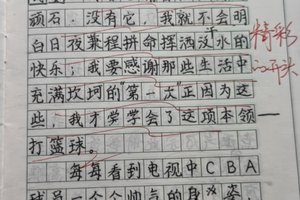 顽石，没有它，我就不会明
白日夜兼程拼命挥洒汗水的
快乐；我要感谢那些生活中
充满坎坷的"第一次"正因为这
些，我才学学会了这项本领—
打篮球。
每每看到电视中CBA
球员一个个帅气的身姿
精彩
的开头